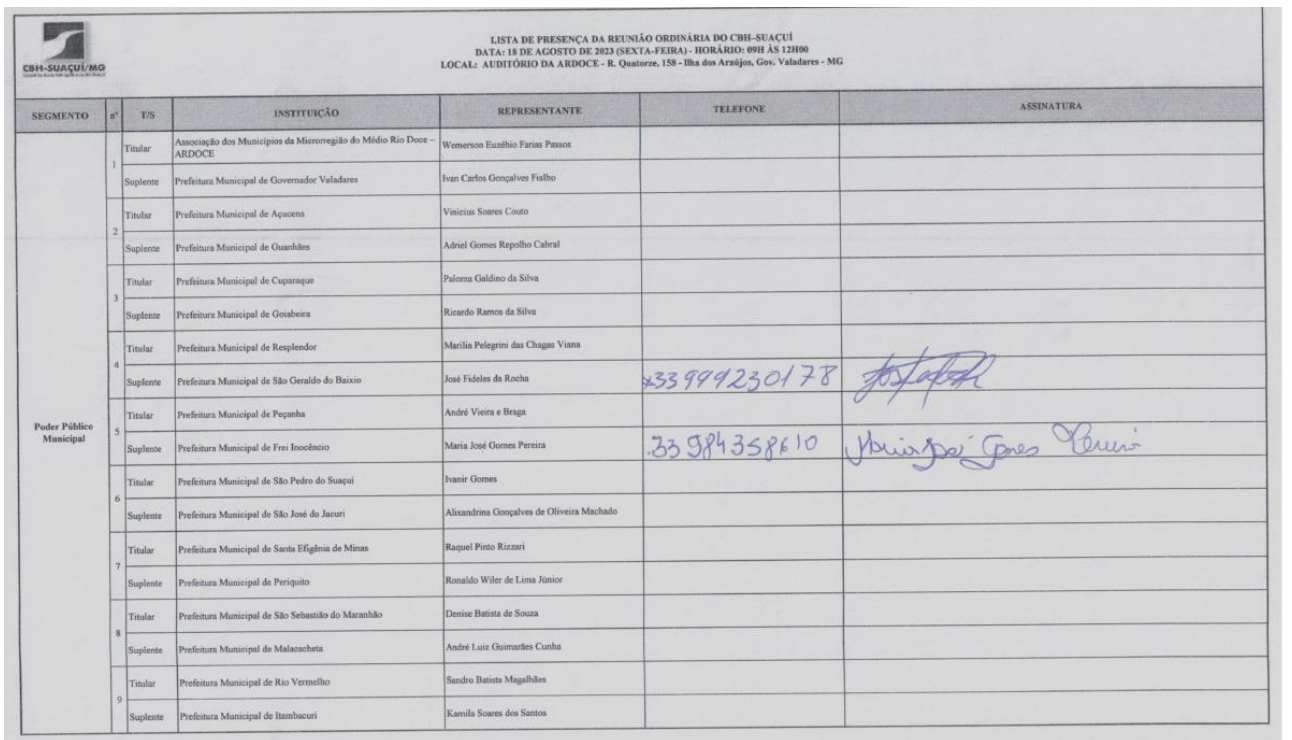 CBH-SUAÇUÍ/MG
LISTA DE PRESENÇA DA REUNIÃO ORDINÁRIA DO CBH–SUAÇUÍ
DATA: 18 DE AGOSTO DE 2023 (SEXTA-FEIRA) - HORÁRIO: 09H ÀS 12H00
LOCAL: AUDITÓRIO DA ARDOCE - R. Quatorze, 158 - Ilha dos Araújos, Gov. Valadares - MG
SEGMENTO nº T/S INSTITUIÇÃO REPRESENTANTE TELEFONE ASSINATURA
Poder Público
Municipal
1
Titular Associação dos Municípios da Microrregião do Médio Rio Doce –
ARDOCE Wemerson Euzébio Farias Passos
Suplente Prefeitura Municipal de Governador Valadares Ivan Carlos Gonçalves Fialho
2
Titular Prefeitura Municipal de Açucena Vinicius Soares Couto
Suplente Prefeitura Municipal de Guanhães Adriel Gomes Repolho Cabral
3
Titular Prefeitura Municipal de Cuparaque Paloma Galdino da Silva
Suplente Prefeitura Municipal de Goiabeira Ricardo Ramos da Silva
4
Titular Prefeitura Municipal de Resplendor Marilia Pelegrini das Chagas Viana
Suplente Prefeitura Municipal de São Geraldo do Baixio José Fideles da Rocha 33999230178
5
Titular Prefeitura Municipal de Peçanha André Vieira e Braga
Suplente Prefeitura Municipal de Frei Inocêncio Maria José Gomes Pereira 33 984358610 Maria José Gomes Pereira
6
Titular Prefeitura Municipal de São Pedro do Suaçuí Ivanir Gomes
Suplente Prefeitura Municipal de São José do Jacuri Alixandrina Gonçalves de Oliveira Machado
7
Titular Prefeitura Municipal de Santa Efigênia de Minas Raquel Pinto Rizzari
Suplente Prefeitura Municipal de Periquito Ronaldo Wiler de Lima Júnior
8
Titular Prefeitura Municipal de São Sebastião do Maranhão Denise Batista de Souza
Suplente Prefeitura Municipal de Malacacheta André Luiz Guimarães Cunha
9
Titular Prefeitura Municipal de Rio Vermelho Sandro Batista Magalhães
Suplente Prefeitura Municipal de Itambacuri Kamila Soares dos Santos